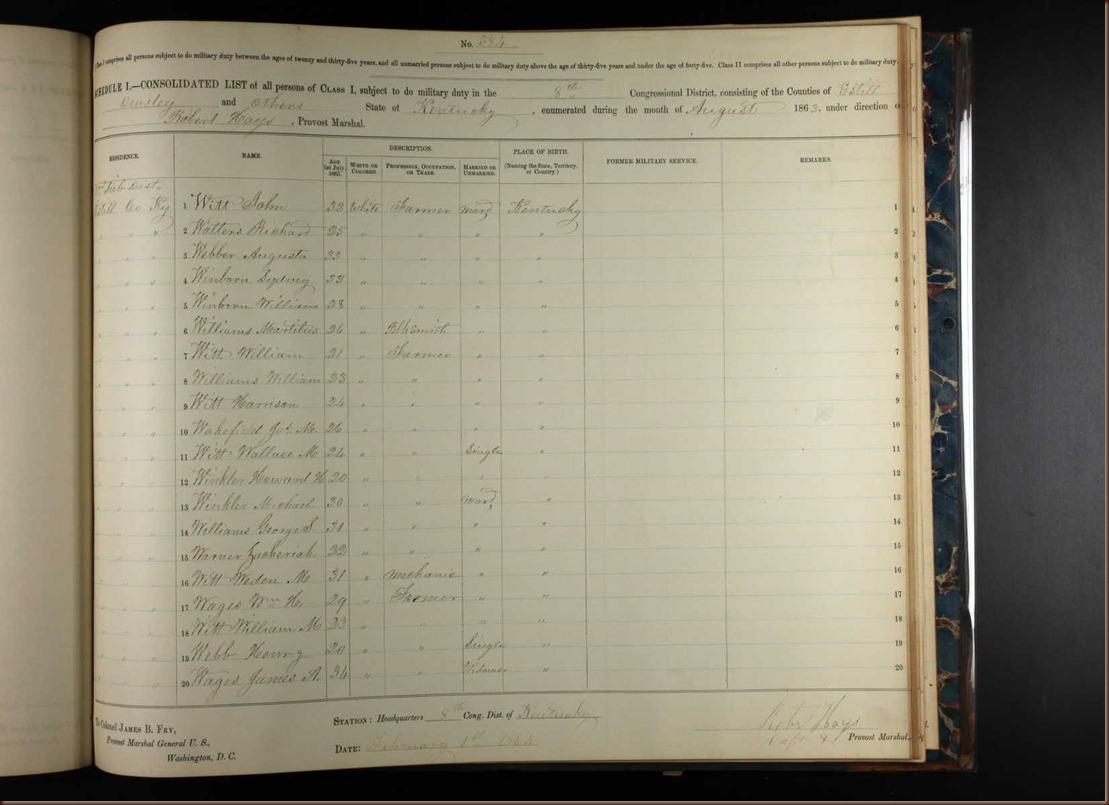 No. 384
Class I comprises all persons subject to do military duty between the ages of twenty and thirty-five years, and all unmarried persons subject to do military duty above the age of thirty-five years and under the age of forty-five. Class II comprises all other persons subject to do military duty.
SCHEDULE I.—CONSOLIDATED LIST of all persons of CLASS I, subject to do military duty in the 8th Congressional District, consisting of the Counties of Estill
Owsley and others State of Kentucky, enumerated during the month of August 1863, under direction of
Robert Hays, Provost Marshal.
RESIDENCE. NAME. DESCRIPTION. PLACE OF BIRTH. FORMER MILITARY SERVICE. REMARKS.
AGE 1st July, 1863. WHITE OR COLORED. PROFESSION, OCCUPATION, OR TRADE. MARRIED OR UNMARRIED. (Naming the State, Territory, or Country.)
Sub Dist
Estill Co Ky 1 Witt John 32 White Farmer mard Kentucky 1
" " " 2 Walters Richard 25 " " " " 2
" " " 3 Webber Augusta 33 " " " " 3
" " " 4 Winborn Sydney 33 " " " " 4
" " " 5 Winborn William 28 " " " " 5
" " " 6 Williams 26 " Blksmith " " 6
" " " 7 Witt William 21 " Farmer " " 7
" " " 8 Williams William 23 " " " " 8
" " " 9 Witt Harrison 24 " " " " 9
" " " 10 Wakefield Jas. M. 26 " " " " 10
" " " 11 Witt Wallace M 24 " " Single " 11
" " " 12 Winkler Howard H 20 " " " " 12
" " " 13 Winkler Michael 30 " " mard, " 13
" " " 14 Williams George S. 31 " " " " 14
" " " 15 Warner Zachariah 22 " " " " 15
" " " 16 Witt Weden M 31 " mechanic " " 16
" " " 17 Wages Wm H. 29 " Farmer " " 17
" " " 18 Witt William M 23 " " " " 18
" " " 19 Webb Henry 20 " " Single " 19
" " " 20 Wages James R. 34 " " Widower " 20
To Colonel JAMES B. FRY,
Provost Marshal General U. S.,
Washington, D. C.
STATION: Headquarters 8th Cong. Dist. of Kentucky
DATE: February 1st 1864
Robt Hays
Capt & Provost Marshal.